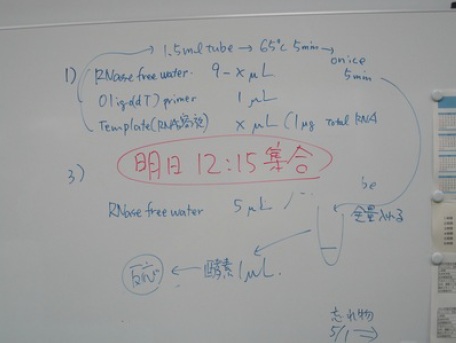 → 1.5ml tube → 65℃ 5min → on ice 5min
1) RNase free water 9-x μL
Oligo(dT) primer 1 μL
Template(RNA溶液) x μL (1μg Total RNA
明日 12:15 集合
3)
RNase free water 5 μL
全量入れる
反応 ← 酵素 1μL.
忘れ物
5/1 →